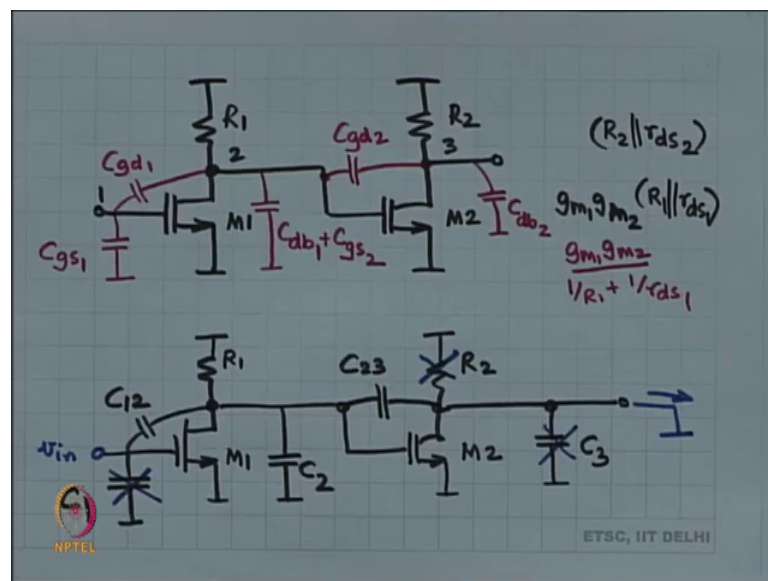 R1
R2
(R2||rds2)
Cgd1
2
Cgd2
3
1
M1
Cgs1
Cdb1+Cgs2
M2
Cdb2
gm1gm2(R1||rds1)
gm1gm2
1/R1 + 1/rds1
R1
C23
R2
C12
vin
M1
C2
M2
C3
C1
NPTEL
ETSC, IIT DELHI